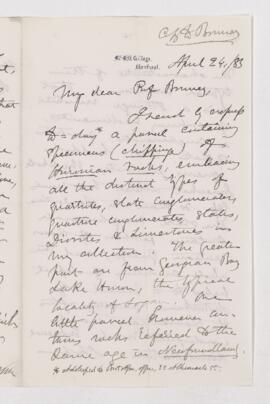 McGill College,
Montreal.
April 24, /83
My dear Prof Bonney,
I send by express
to-day a parcel containing
specimens (chippings) of
Huronian rocks, embracing
all the distinct types of
quartzites, slate conglomerates
quartzite conglomerates, slates,
Diorites & limestones in
my collection. The greater
part are from Georgian Bay
Lake Huron, the typical
locality of Logan. One
little parcel however con
tains rocks referred to the
same age in Newfoundland.